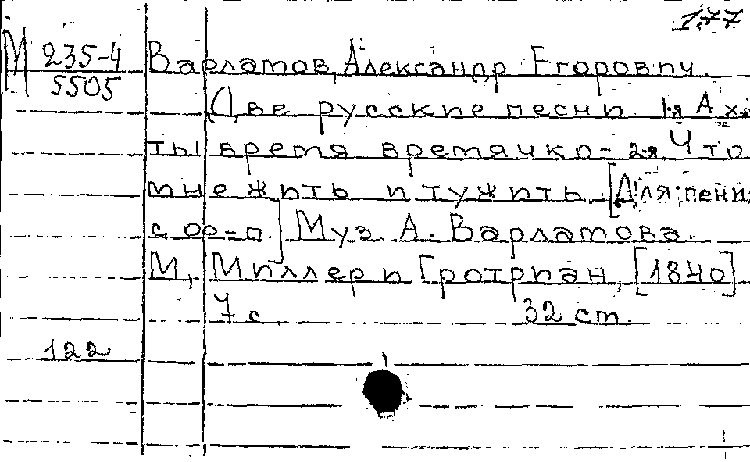 177
М 235-4
5505
Варламов, Александр Егорович.
Две русские песни 1-я Ах
ты время времячко - 2-я Что
мне жить и тужить. [Для пения
с ф-п.] Муз. А. Варламова.
М., Миллер и Гротриан, [1840]
7 с. 32 см.
122